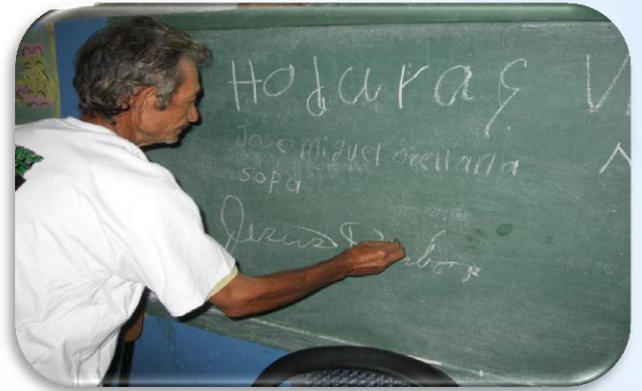 Hoduras
Jose miguel orellana
sopa
Jesus